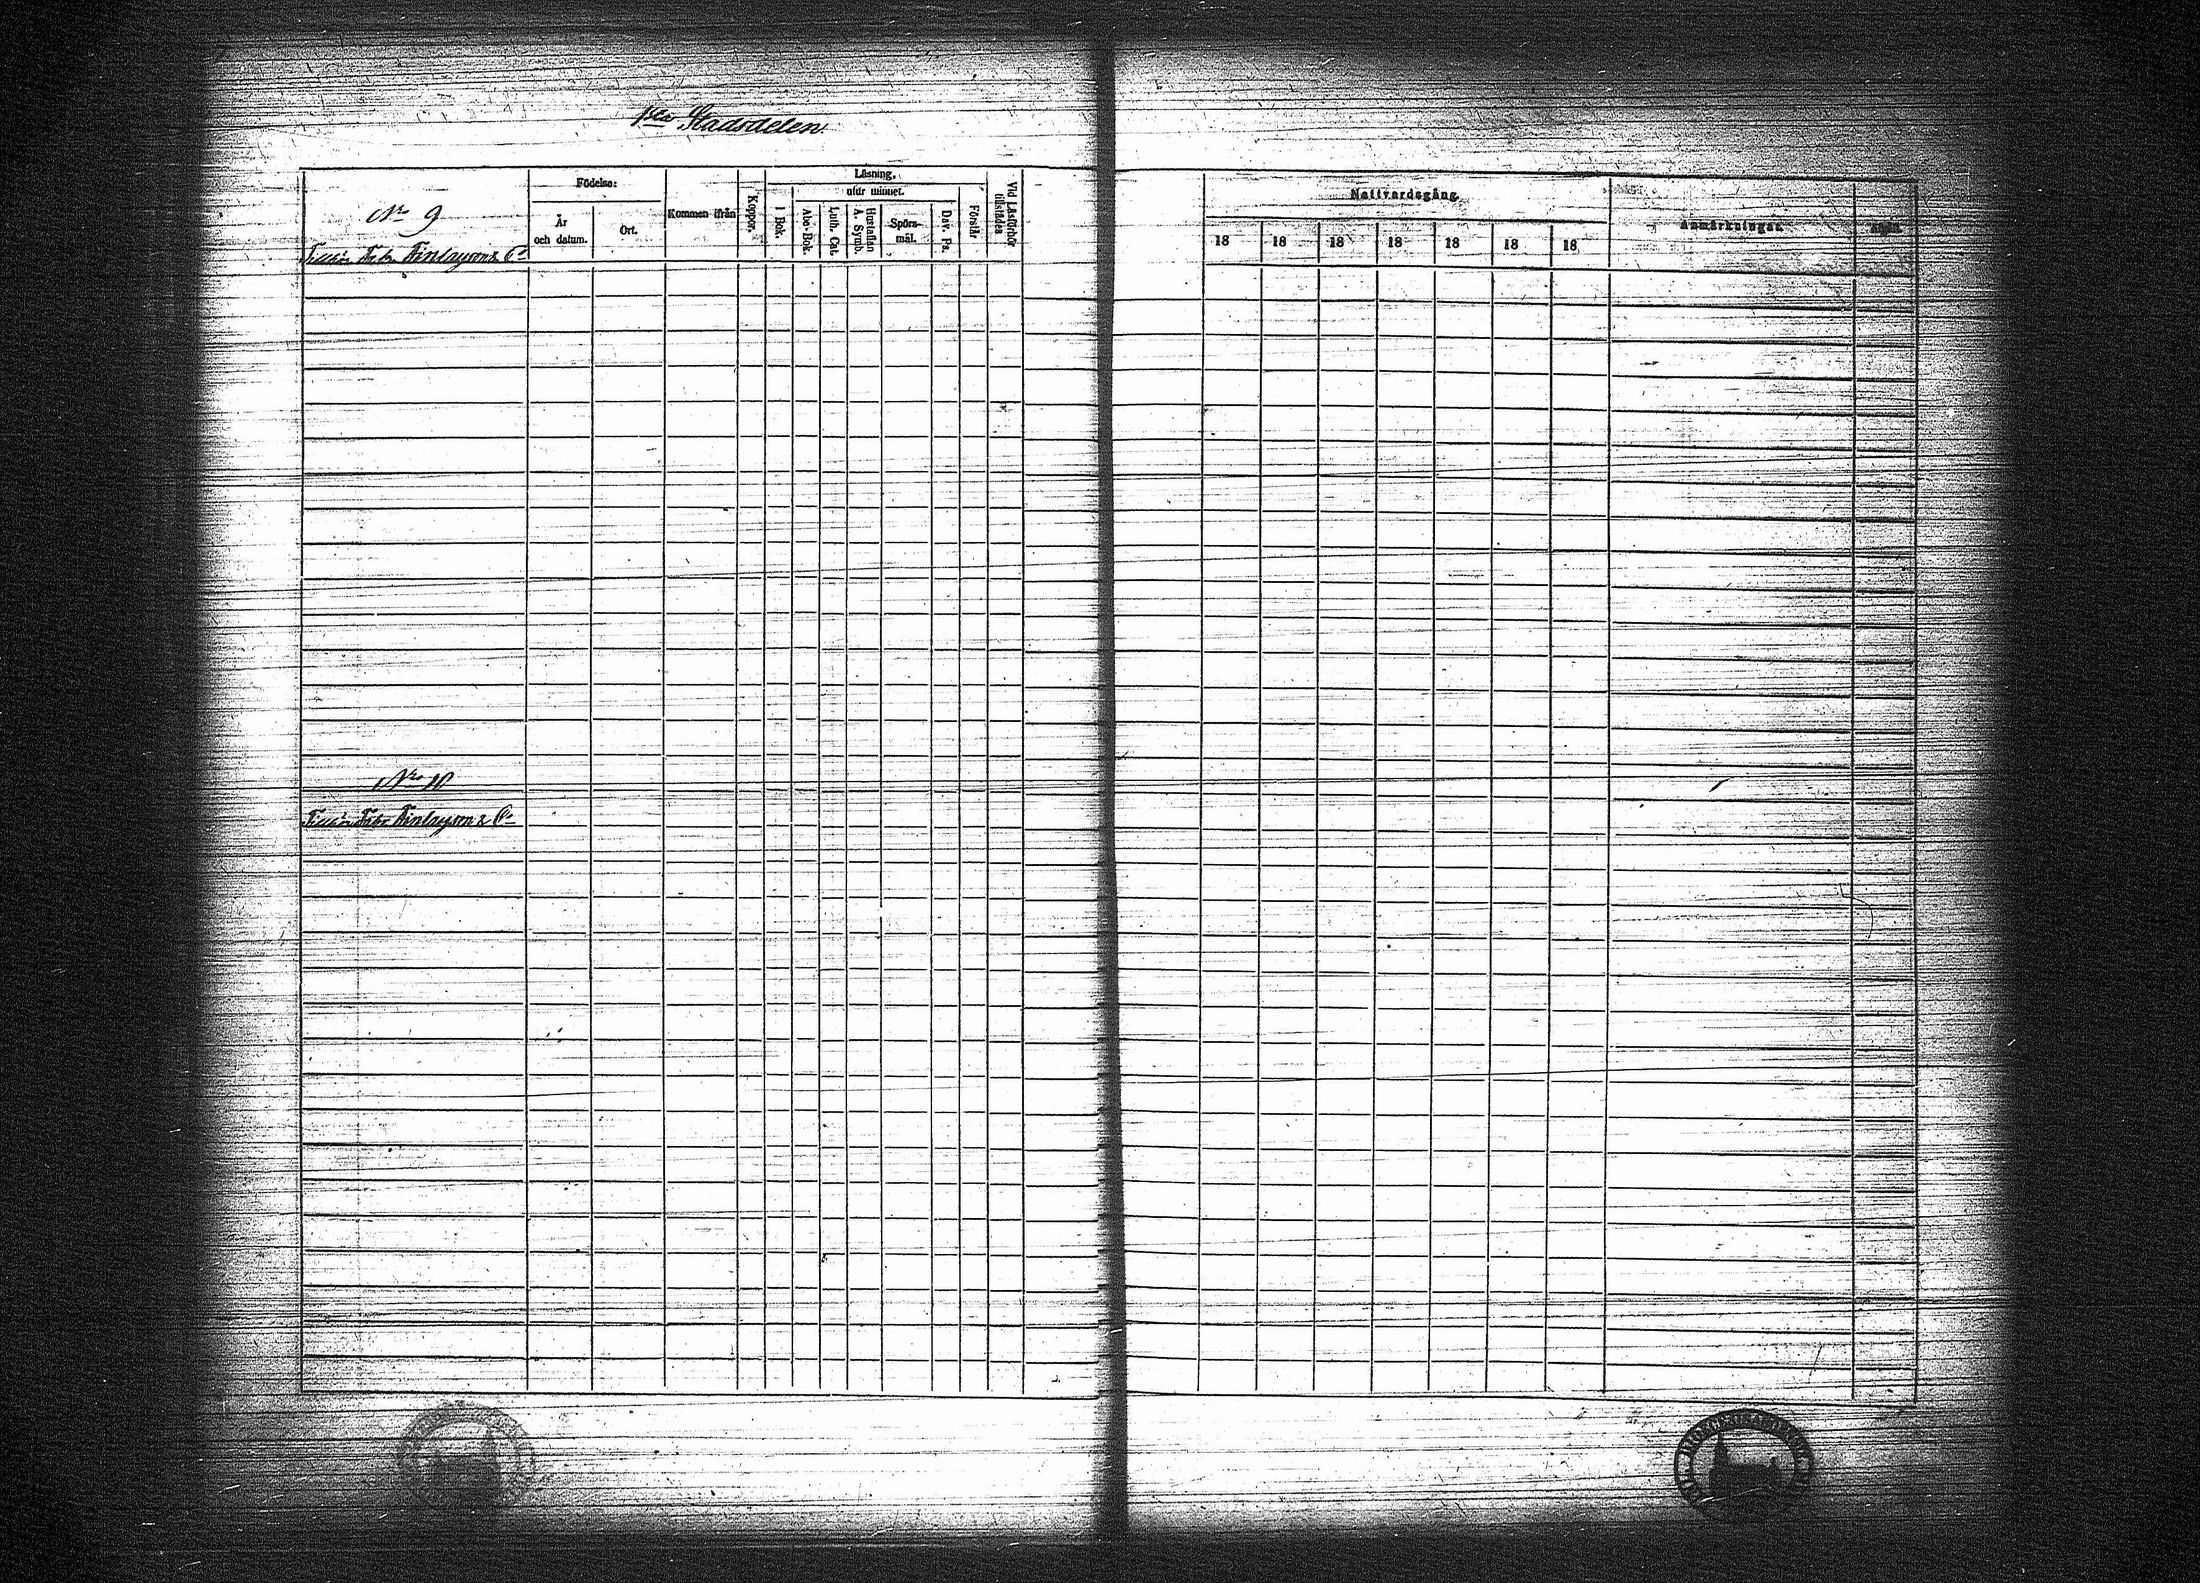 1sta Stadsdelen.
Födelse:
Läsning.
utur minnet.
År
och datum.
Ort.
Kommen ifrån
Koppor.
I Bok.
Abc-Bok.
Luth. Cat.
Hustaflan
A. Symb.
Spörs-
mål.
Dav. Ps.
Förstår
Vid Läsförhör
tillstädes
Nattvardsgång.
18 18 18 18 18 18 18
Anmärkningar.
No 9
Finlayson & Co
Nro 10
Finlayson & Co